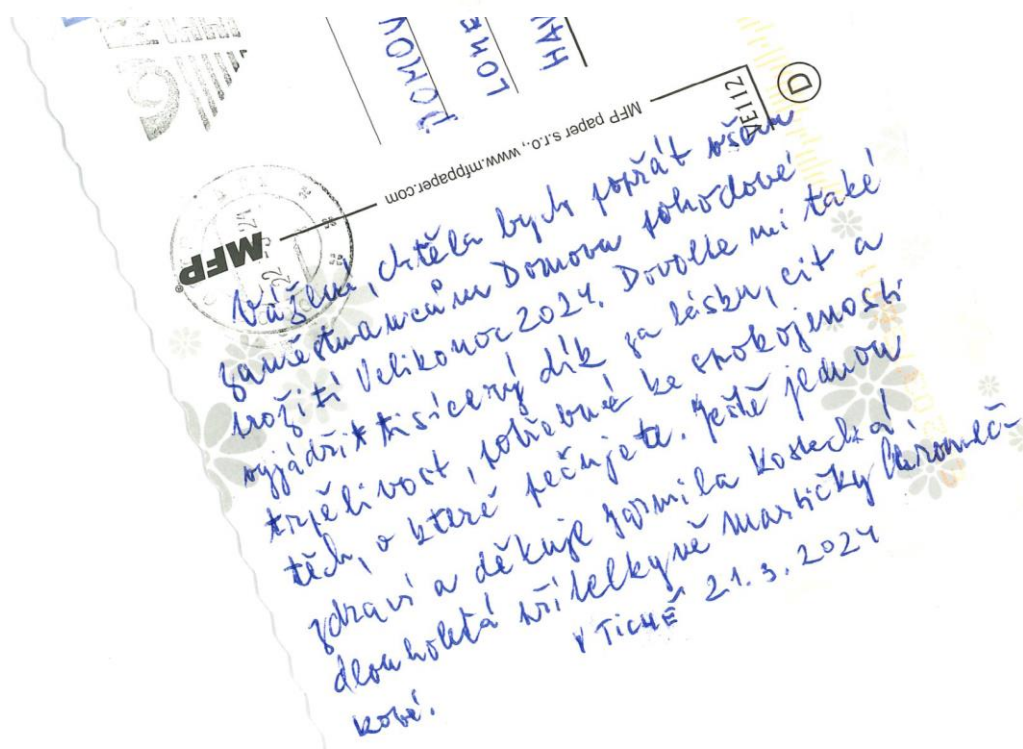 DOMOV
LOME
HAV
MFP paper s.r.o., www.mfppaper.com
VE112
D
MFP
Vážení, chtěla bych popřát všem
zaměstnancům Domova pohodové
prožití Velikonoc 2024. Dovolte mi také
vyjádřit tisícerý dík za lásku, cit a
trpělivost, potřebné ke spokojenosti
těch, o které pečujete. Ještě jednou
zdraví a děkuje Jarmila Kostecká
dlouholetá přítelkyně Martičky
kové.
V TICHÉ 21.3.2024